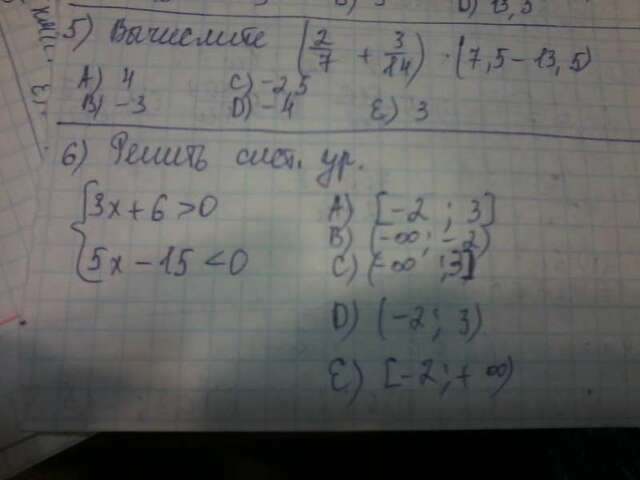 D) 13,5
5) Вычислите (2/7 + 3/14) · (7,5 - 13,5)
A) 4 C) -2,5
B) -3 D) -4 E) 3
6) Решить сист. ур.
{3x + 6 > 0 A) [-2 ; 3]
B) (-∞; -2)
5x - 15 < 0 C) (-∞ ; 3]
D) (-2; 3)
E) [-2; +∞)